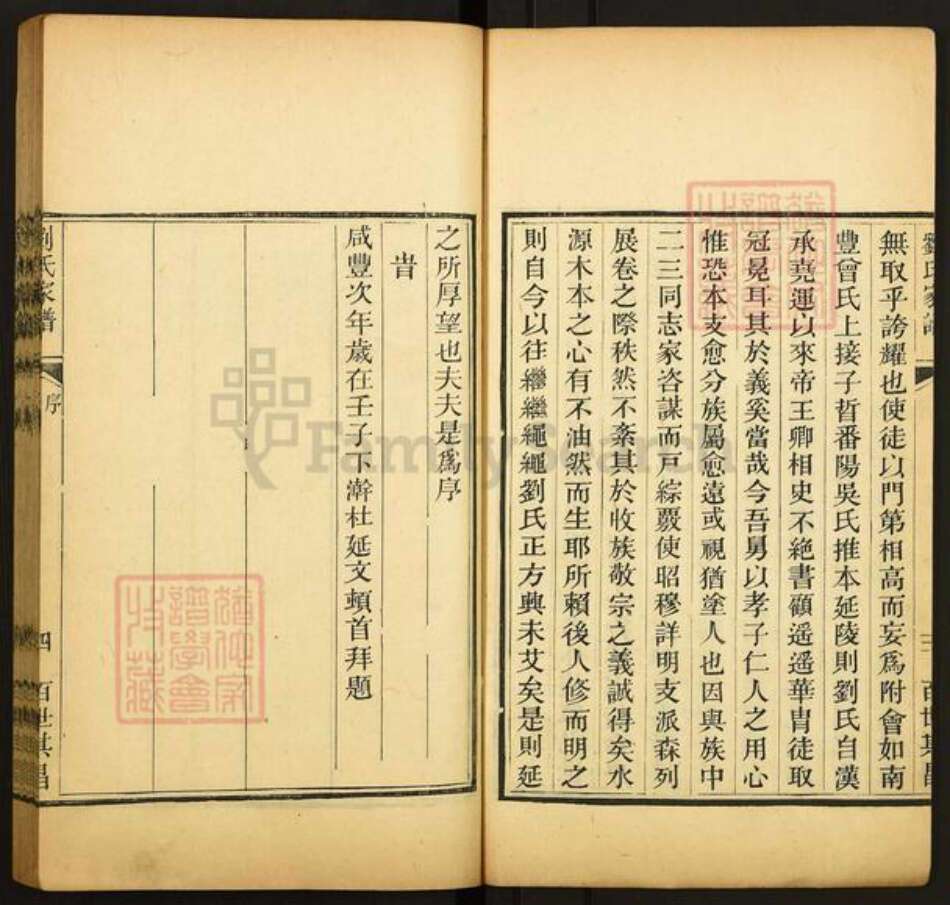 劉氏家譜
無取乎誇耀也使徒以門第相高而妄爲附會如南
豐曾氏上接子晳番陽吳氏推本延陵則劉氏自漢
承堯運以來帝王卿相史不絶書顧遥遥華胄徒取
冠冕耳其於義奚當哉今吾舅以孝子仁人之用心
惟恐本支愈分族屬愈遠或視猶塗人也因與族中
二三同志家咨謀而戸綜覈使昭穆詳明支派森列
展卷之際秩然不紊其於收族敬宗之義誠得矣水
源木本之心有不油然而生耶所賴後人修而明之
則自今以往繼繼繩繩劉氏正方興未艾矣是則延
之所厚望也夫夫是爲序
旹
咸豐次年歲在壬子下澣杜延文頓首拜題
劉氏家譜
序
四
百世其昌
百世其昌
FamilySearch